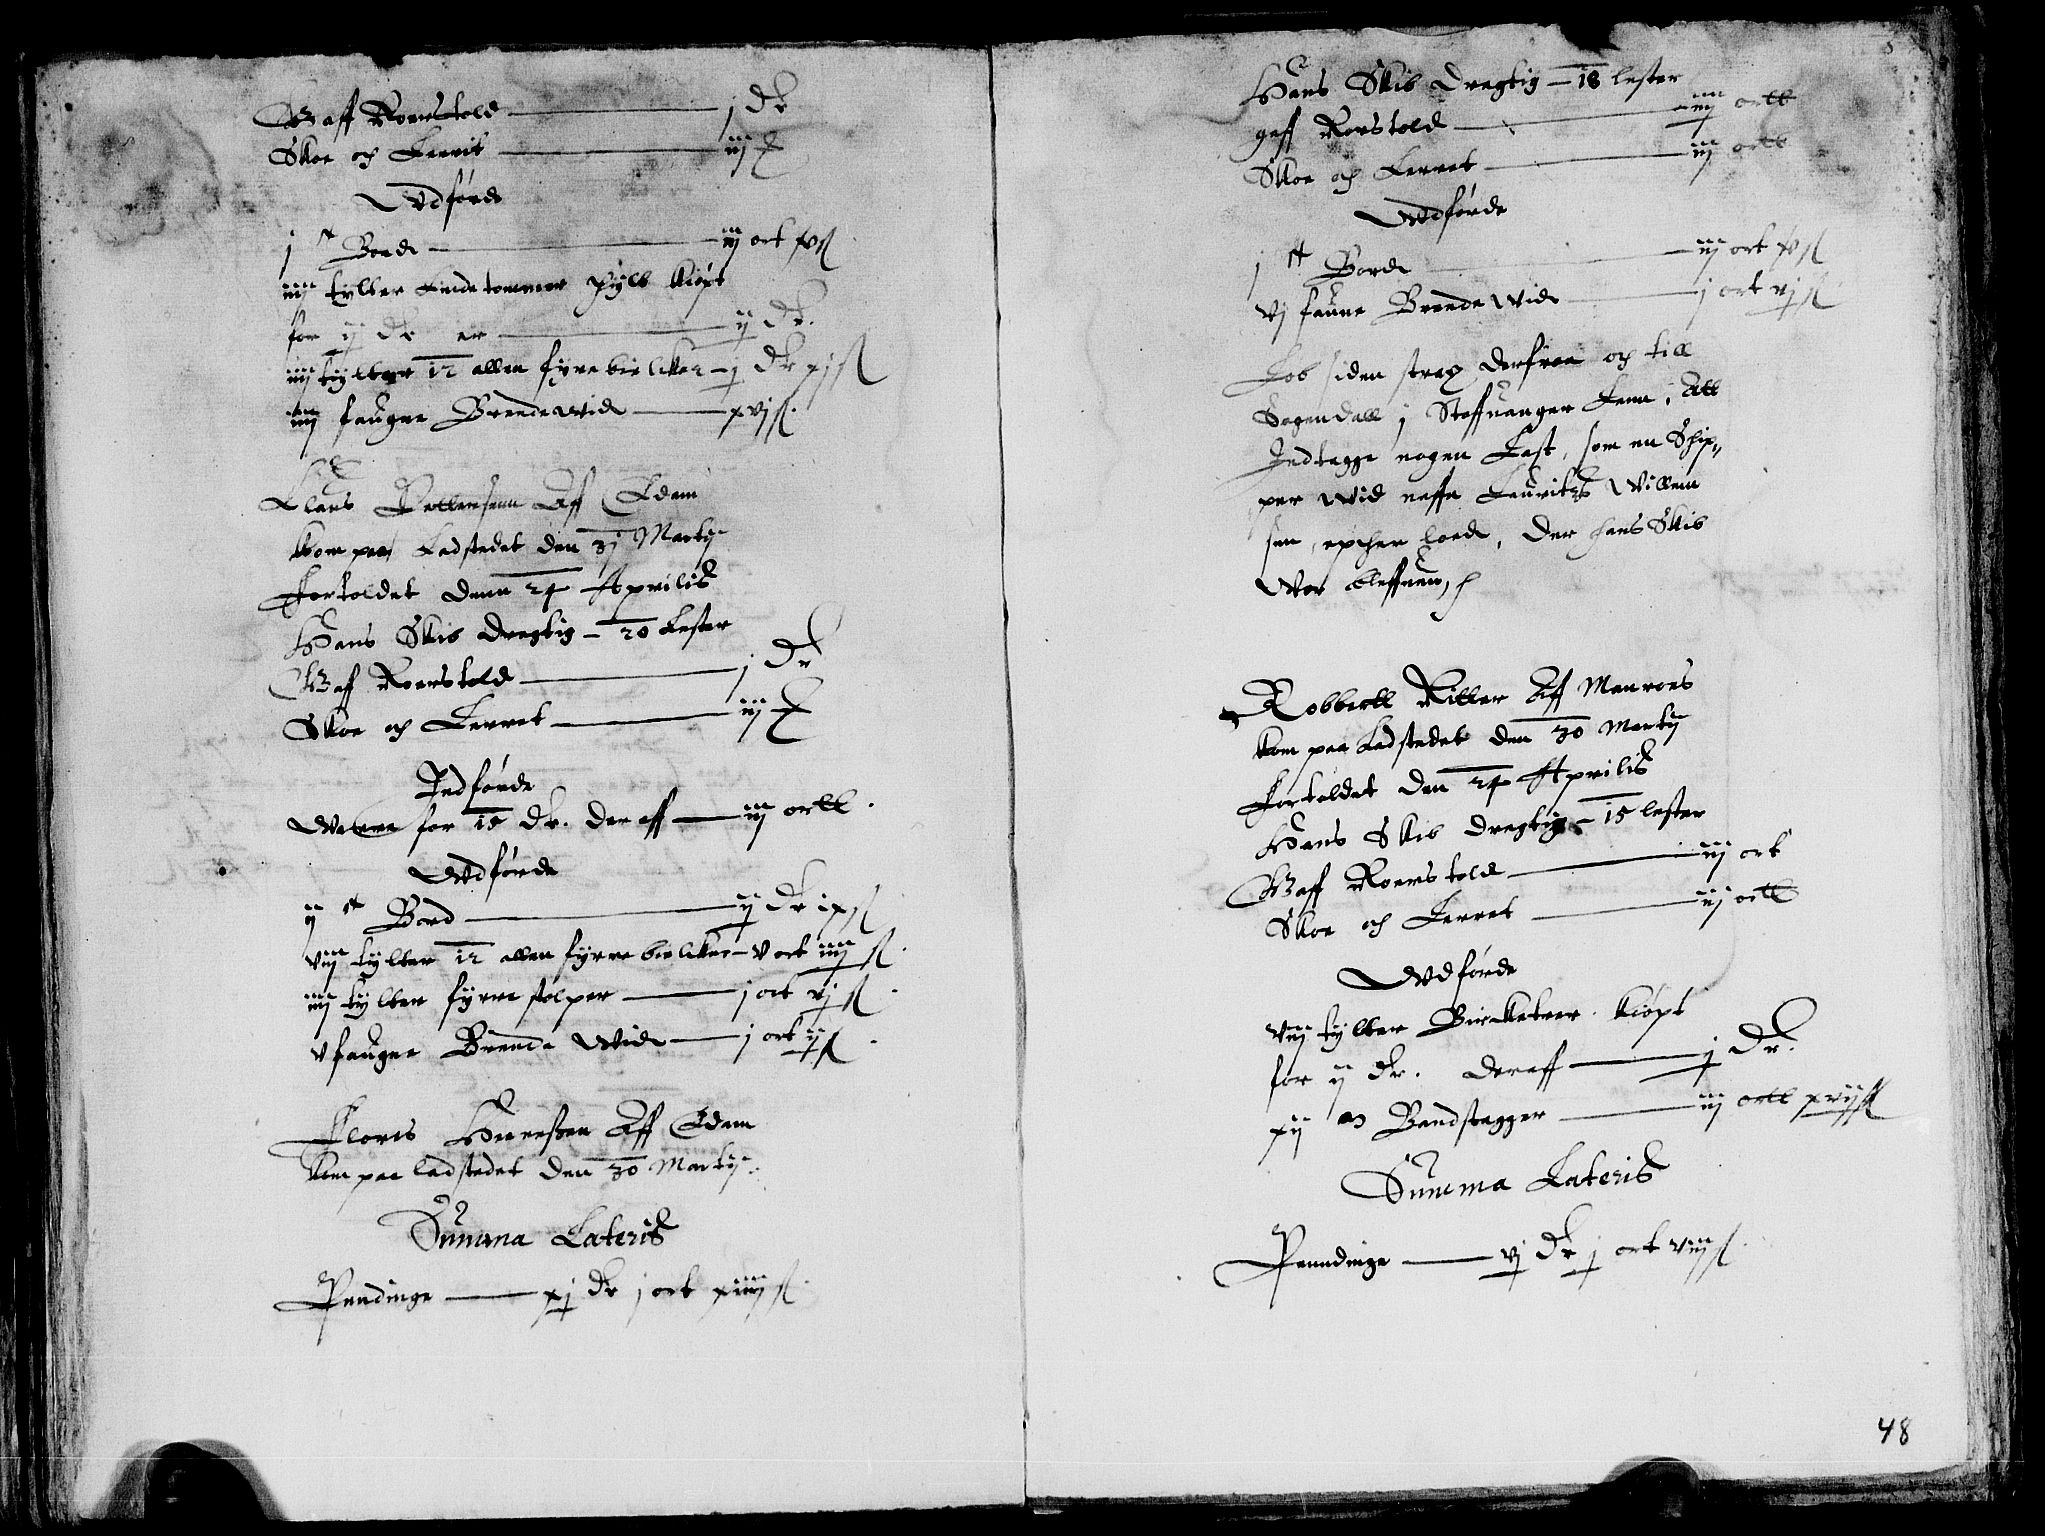 Gaff Roerstold — j dr
Skoe och Lerrit — iij
Udførde
j Bord — iij ort xv ß
iiij tylter Lindetommer kiøpt
for ij dr er — ij dr.
iiij tylter 12 allen fyrre bielker — j dr xj ß
iiij faugne Brendewid — xvj ß.
Claus Pettersenn Aff Edam
kom paa Ladstedet den 31 Martij
Fortoldet denn 24 Aprilis
Hans Skib dregtig – 20 Lester
Gaff Roerstold — j dr
Skoe och Lerret — iij
Indførde
Ware for 15 dr. der aff — iij ortt.
Udførde
ij Bord — ij dr ix ß
viij tylter 12 allen fyrre bielker – v ort iiij ß.
iiij tylter fyrre stolper — j ort vj ß.
v faugne Brende wid — j ort ij ß.
Floris Aff Edam
kom paa ladstedet den 30 Martij.
Summa Lateris
Pendinge — xj dr j ort xiiij ß.
Hans Skib dregtig – 18 lester
gaff Rorstold — iij ortt
Skoe och Lerret — iij ortt
Udførde
j Bord — iij ort xv ß
vj faune Brende wid — j ort vj ß.
Lob siden strax derfraa och till
Sogendall j Staffuanger Lenn, att
Indtagge nogen Last, som en Skip„
per wid naffn Lauritz Willem
sen, loed, der hans Skib
wor bleffuen,
Robbertt Ritter Aff Manroes
kom paa Ladstedet den 30 Martij
Fortoldet den 24 Aprilis
Hans Skib dregtig – 15 lester
Gaff Roerstold — iij ort
Skoe och Lerret — iij ortt
Udførde
viij tylter Birketrer kiøpt
for ij dr. der aff — j dr.
xij m Bandstagger — iij ortt xvij ß
Summa Lateris
Penndinge — vj dr j ort viij ß.
48